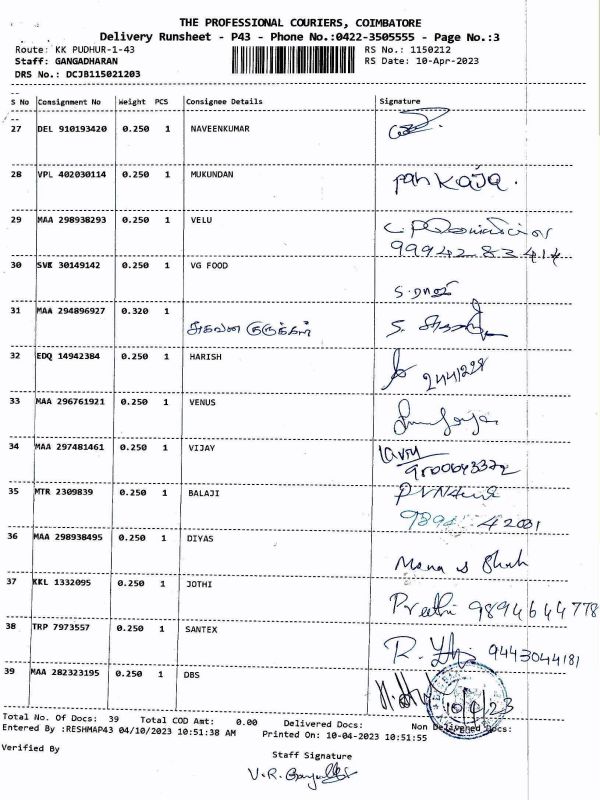 THE PROFESSIONAL COURIERS, COIMBATORE
Delivery Runsheet - P43 - Phone No.:0422-3505555 - Page No.:3
Route: KK PUDHUR-1-43 RS No.: 1150212
Staff: GANGADHARAN RS Date: 10-Apr-2023
DRS No.: DCJB115021203
S No Consignment No Weight PCS Consignee Details Signature
27 DEL 910193420 0.250 1 NAVEENKUMAR
28 VPL 402030114 0.250 1 MUKUNDAN
pankaja.
29 MAA 298938293 0.250 1 VELU
99942 83414
30 SVK 30149142 0.250 1 VG FOOD
31 MAA 294896927 0.320 1
32 EDQ 14942384 0.250 1 HARISH
2441228
33 MAA 296761921 0.250 1 VENUS
34 MAA 297481461 0.250 1 VIJAY
9500043372
35 MTR 2309839 0.250 1 BALAJI
36 MAA 298938495 0.250 1 DIYAS
Shah
37 KKL 1332095 0.250 1 JOTHI
Preethi 9894644778
38 TRP 7973557 0.250 1 SANTEX
9443044181
39 MAA 282323195 0.250 1 DBS
10/4/23
Total No. Of Docs: 39 Total COD Amt: 0.00 Delivered Docs: Non Delivered Docs:
Entered By :RESHMAP43 04/10/2023 10:51:38 AM Printed On: 10-04-2023 10:51:55
Verified By
Staff Signature